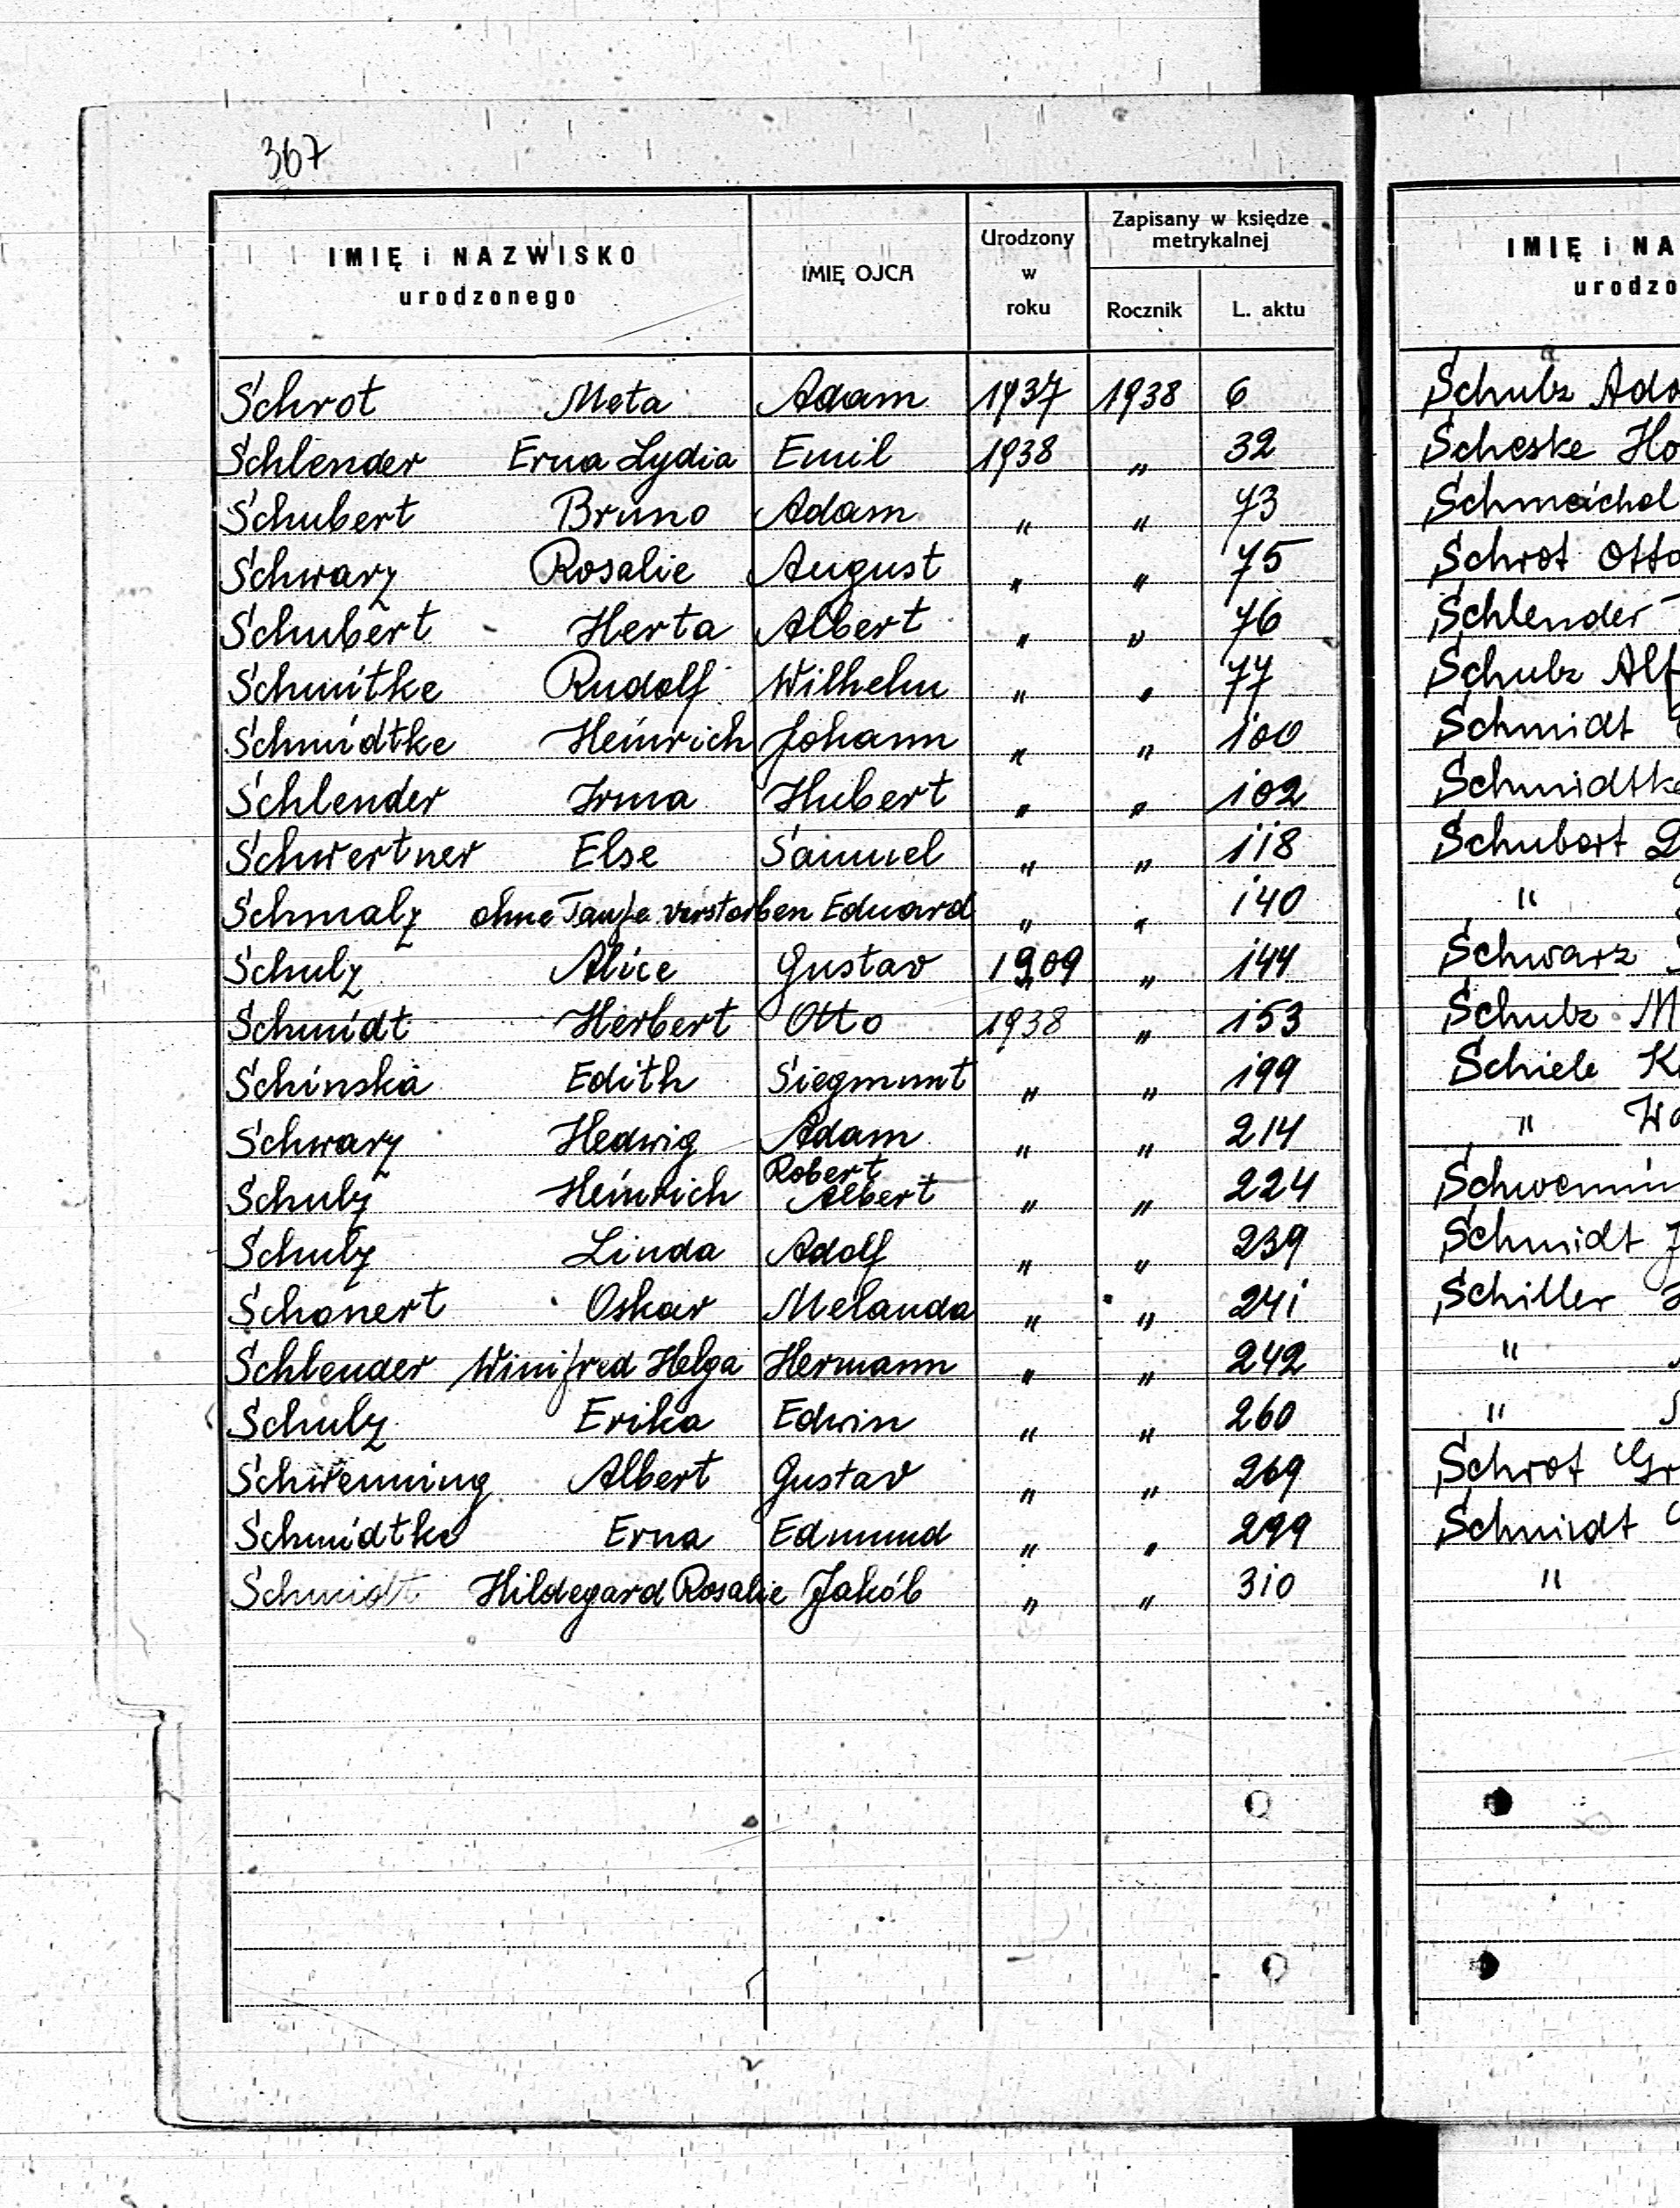 367
IMIĘ i NAZWISKO
urodzonego
IMIĘ OJCA
Urodzony
w
roku
Zapisany w księdze
metrykalnej
Rocznik
L. aktu
Schrot Meta Adam 1937 1938 6
Schlender Erna Lydia Emil 1938 " 32
Schubert Bruno Adam " " 73
Schwarz Rosalie August " " 75
Schubert - Herta Albert " " 76
Schmitke Rudolf Wilhelm " " 77
Schmidtke Heinrich Johann " " 100
Schlender Irma Hubert " " 102
Schwertner Else Samuel " " 118
Schmalz ohne Taufe verstorben Eduard " " 140
Schulz Alice Gustav 1909 " 144
Schmidt Herbert Otto 1938 " 153
Schinska Edith Siegmunt " " 199
Schwarz Hedwig Adam " " 214
Schulz Heinrich Robert Albert " " 224
Schulz Linda Adolf " " 239
Schonert Oskar Melanda " " 241
Schlender Winifred Helga Hermann " " 242
Schulz Erika Edwin " " 260
Schwenning Albert Gustav " " 269
Schmidtke Erna Edmund " " 299
Schmidt Hildegard Rosalie Jakób " " 310
IMIĘ i NA
urodzo
Schulz Ado
Scheske Ho
Schmeichel
Schrot Otto
Schlender
Schulz Alf
Schmidt
Schmidtke
Schubert
"
Schwarz
Schulz M
Schiele K
" Wa
Schwennin
Schmidt J
Schiller
"
"
Schrot Gr
Schmidt
"